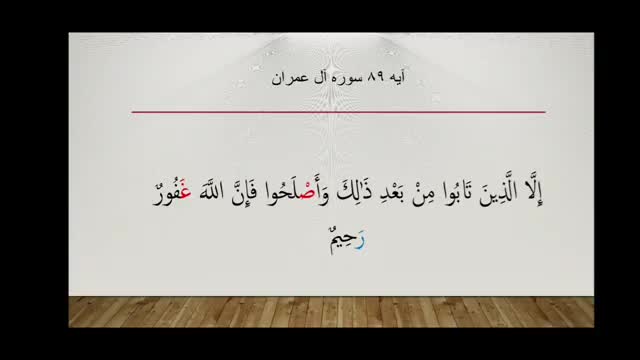 آیه ۸۹ سوره آل عمران
إِلَّا الَّذِينَ تَابُوا مِنْ بَعْدِ ذَٰلِكَ وَأَصْلَحُوا فَإِنَّ اللَّهَ غَفُورٌ
رَحِيمٌ